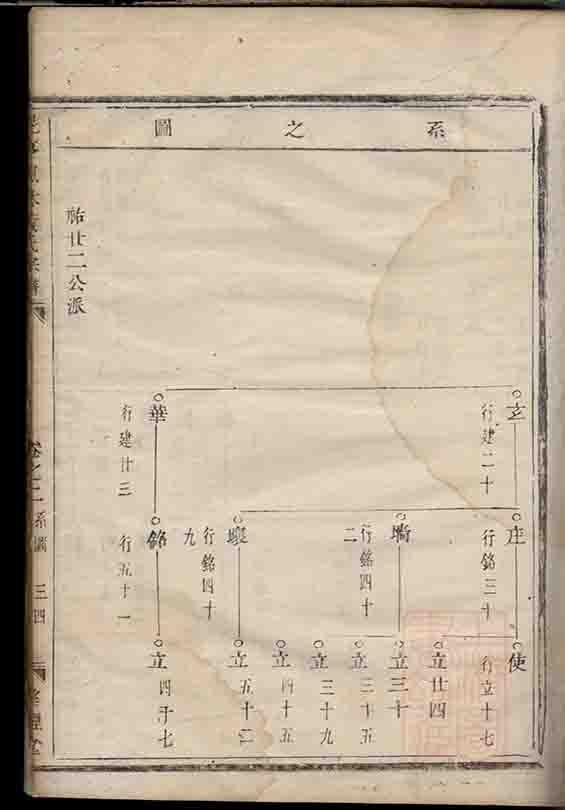 系之圖
玄
行建二十
華
行建廿三
庄
行銘三十
墻
行銘四十二
行銘四十九
銘
行五十一
使
行立十七
立廿四
立三十
立三十五
立三十九
立四十五
立五十二
立四十七
胎廿二公派
卷之二系圖
三四